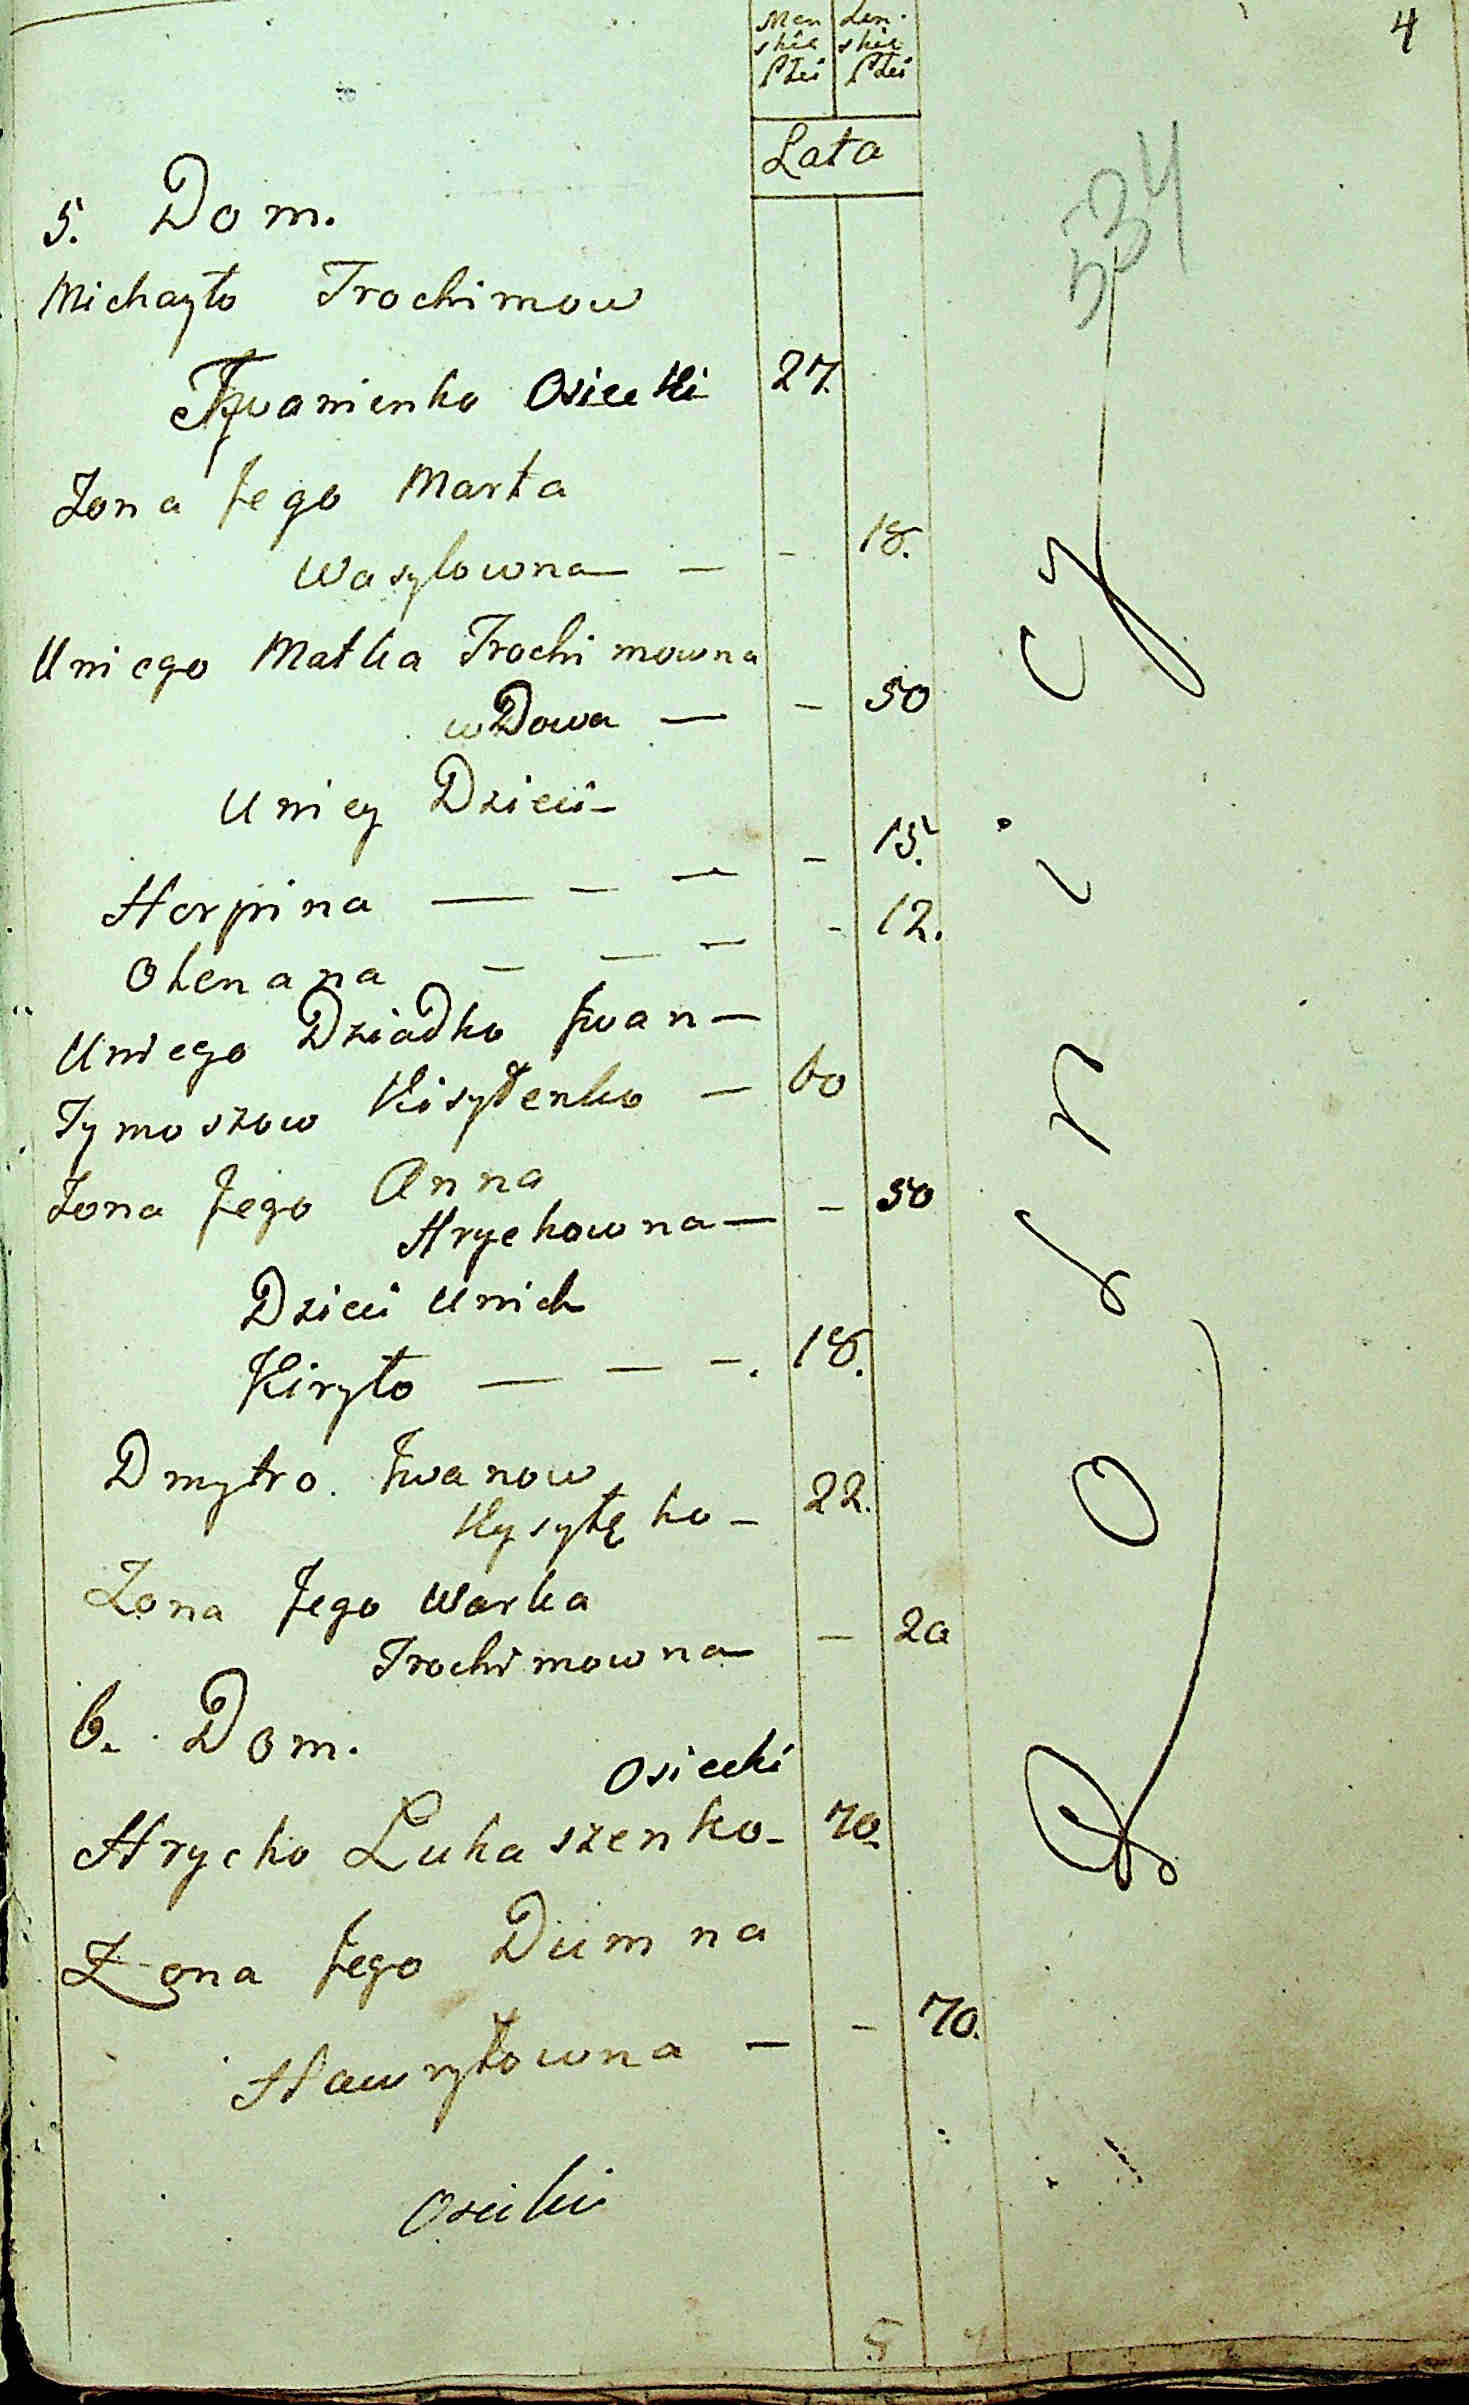 4
Men Zen
skie skie
Płci Płci
Lata
534
5. Dom.
Michayło Trochimow
Iwanienko Osiecki 27.
Zona Jego Marta
Wasylowna — - 18.
Uniego Matka Trochimowna
wDowa — - 50
Uniey Dzieci
Horpina — - — - 15.
Olenana - - — - 12.
Uniego Dziadko Iwan —
Tymoszow Kisyłenko — 60
Zona Jego Anna
Hryckowna — - 50
Dzieci Unich
Kiryło — — -. 18.
Dmytro. Iwanow
Kysyłęko - 22.
Zona Jego Warka
Trochimowna - 20
6. Dom.
Osiecki
Hrycko Lukaszenko - 70.
Zona Jego Dumna
Hawryłowna — - 70.
5 4